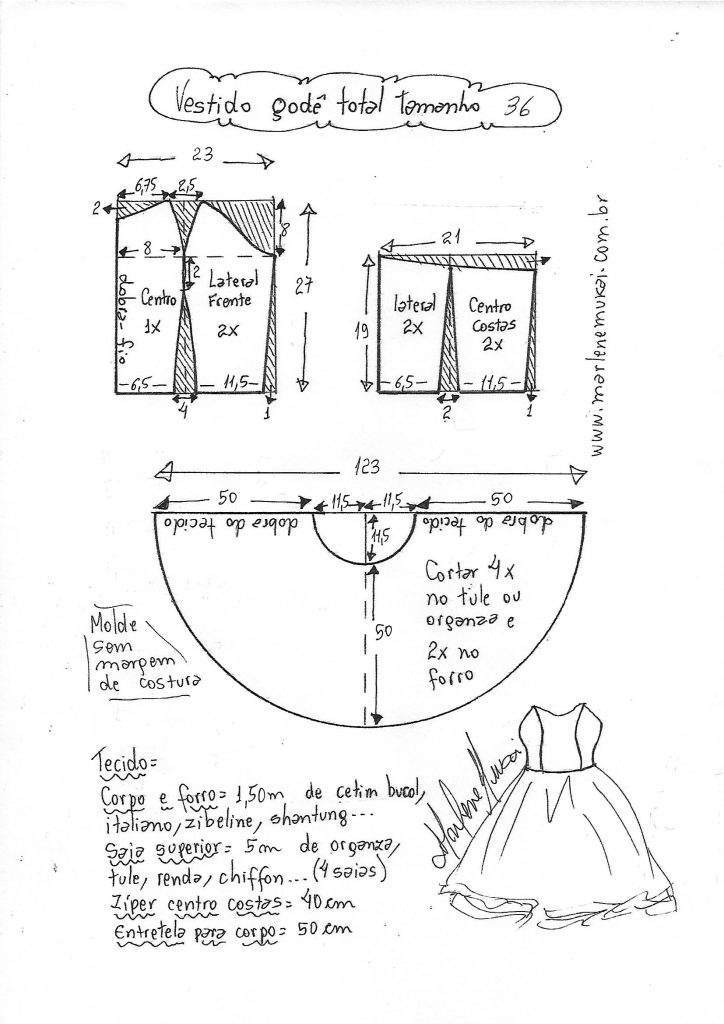 Vestido godê total Tamanho 36
23
6,75
2,5
2
8
8
2
27
Centro
1x
Lateral
Frente
2x
dobra-fio
6,5
11,5
4
1
21
19
lateral
2x
Centro
Costas
2x
6,5
11,5
2
1
www.marlenemukai.com.br
123
50
11,5
11,5
50
dobra do tecido
dobra do tecido
11,5
50
Cortar 4x
no tule ou
organza e
2x no
forro
Molde
sem
margem
de costura
Tecido=
Corpo e forro= 1,50m de cetim bucol,
italiano, zibeline, shantung...
Saia superior= 5m de organza,
tule, renda, chiffon... (4 saias)
Zíper centro costas= 40 cm
Entretela para corpo= 50 cm
Marlene Mukai